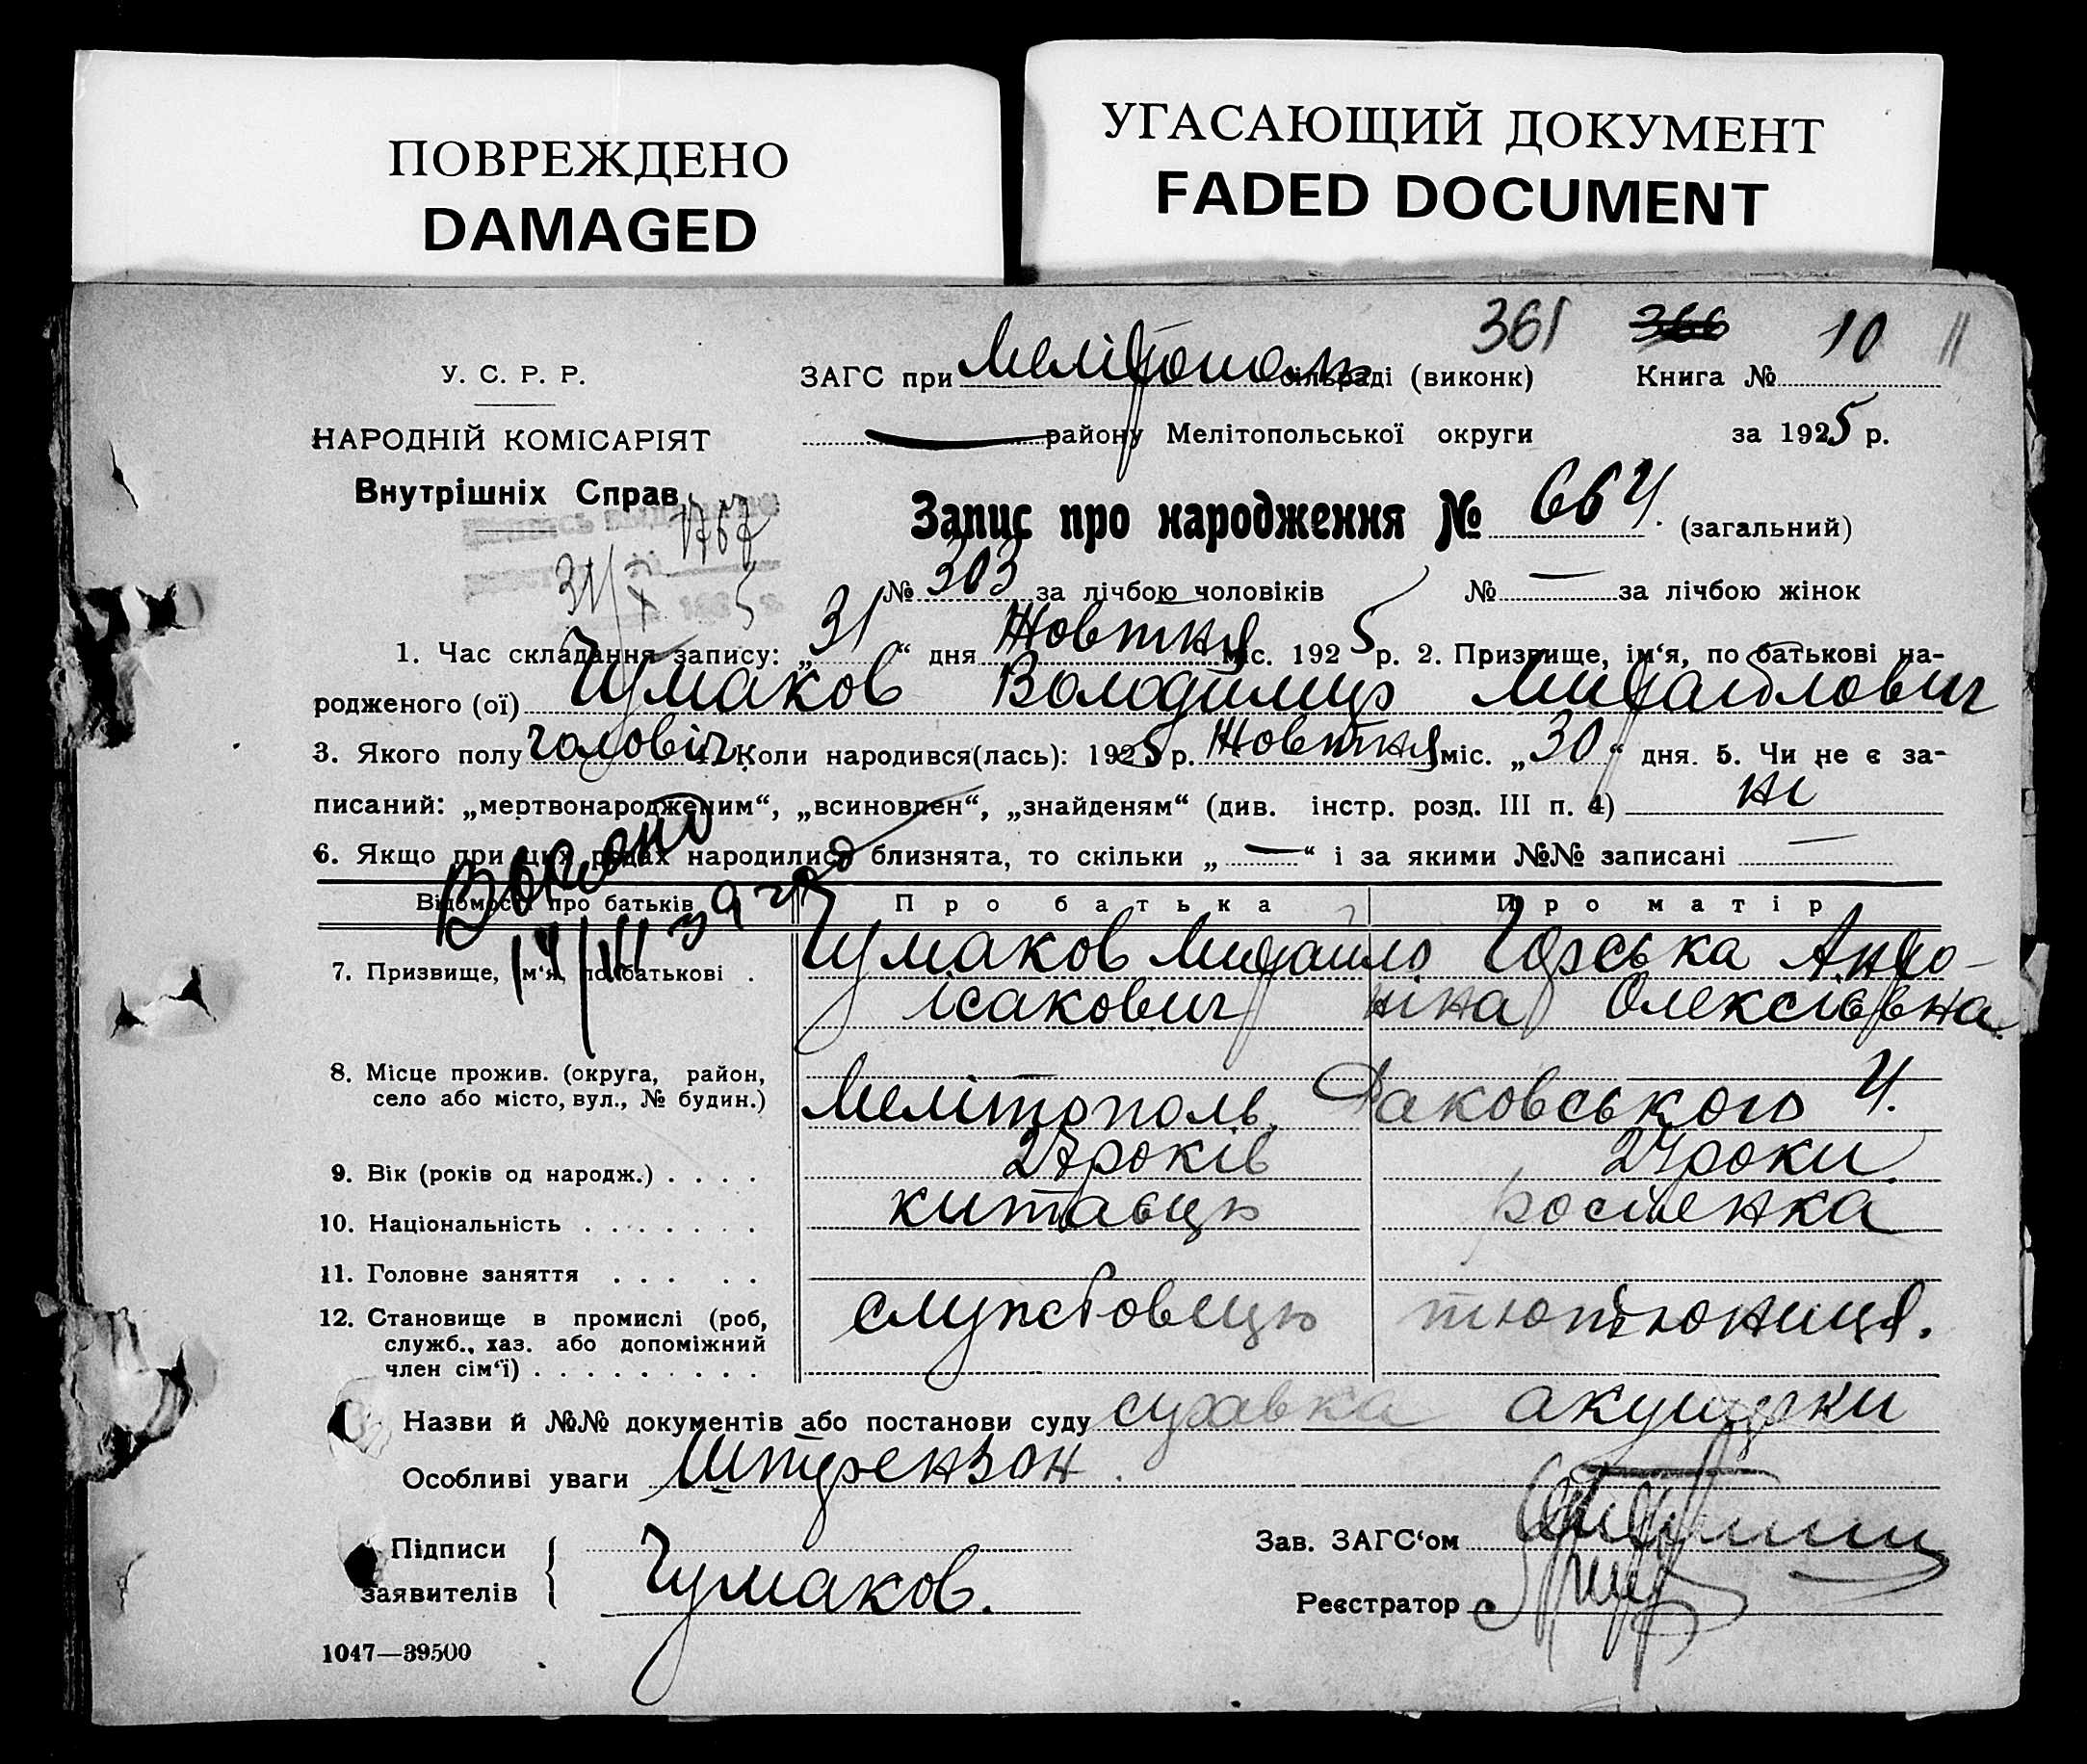 ПОВРЕЖДЕНО
DAMAGED
УГАСАЮЩИЙ ДОКУМЕНТ
FADED DOCUMENT
361 366 10 11
У. С. Р. Р.
ЗАГС при Мелітополь сільраді (виконк) Книга №
НАРОДНІЙ КОМІСАРІЯТ
району Мелітопольської округи за 1925 р.
Внутрішніх Справ
1757
Запис про народження № 664. (загальний)
31/X 5
№ 303 за лічбою чоловіків № — за лічбою жінок
1. Час складання запису: „31“ дня Жовтня міс. 1925 р. 2. Призвище, ім‘я, по батькові на-
родженого (ої) Чумаков Володимир Михайлович
3. Якого полу чоловіч. 4. Коли народився(лась): 1925 р. Жовтня міс. „30“ дня. 5. Чи не є за-
писаний: „мертвонародженим“, „всиновлен“, „знайденям“ (див. інстр. розд. III п. 4) ні
6. Якщо при цих родах народилися близнята, то скільки „—“ і за якими №№ записані —
Відомості про батьків Про батька Про матір
7. Призвище, ім‘я, по батькові . Чумаков Михайло Горська Анто-
ісакович ніна Олексієвна.
8. Місце прожив. (округа, район,
село або місто, вул., № будин.) Мелітополь, Раковського 4.
9. Вік (років од народж.) . . . . 27 років 24 роки
10. Національність . . . . . . . китаєць росіенка
11. Головне заняття . . . . .
12. Становище в промислі (роб, службовець
служб., хаз. або допоміжний
член сім‘ї) . . . . . . . . .
Назви й №№ документів або постанови суду справка акушерки
Особливі уваги Штерензон.
Підписи
заявителів Чумаков.
Зав. ЗАГС‘ом
Реєстратор
1047—39500